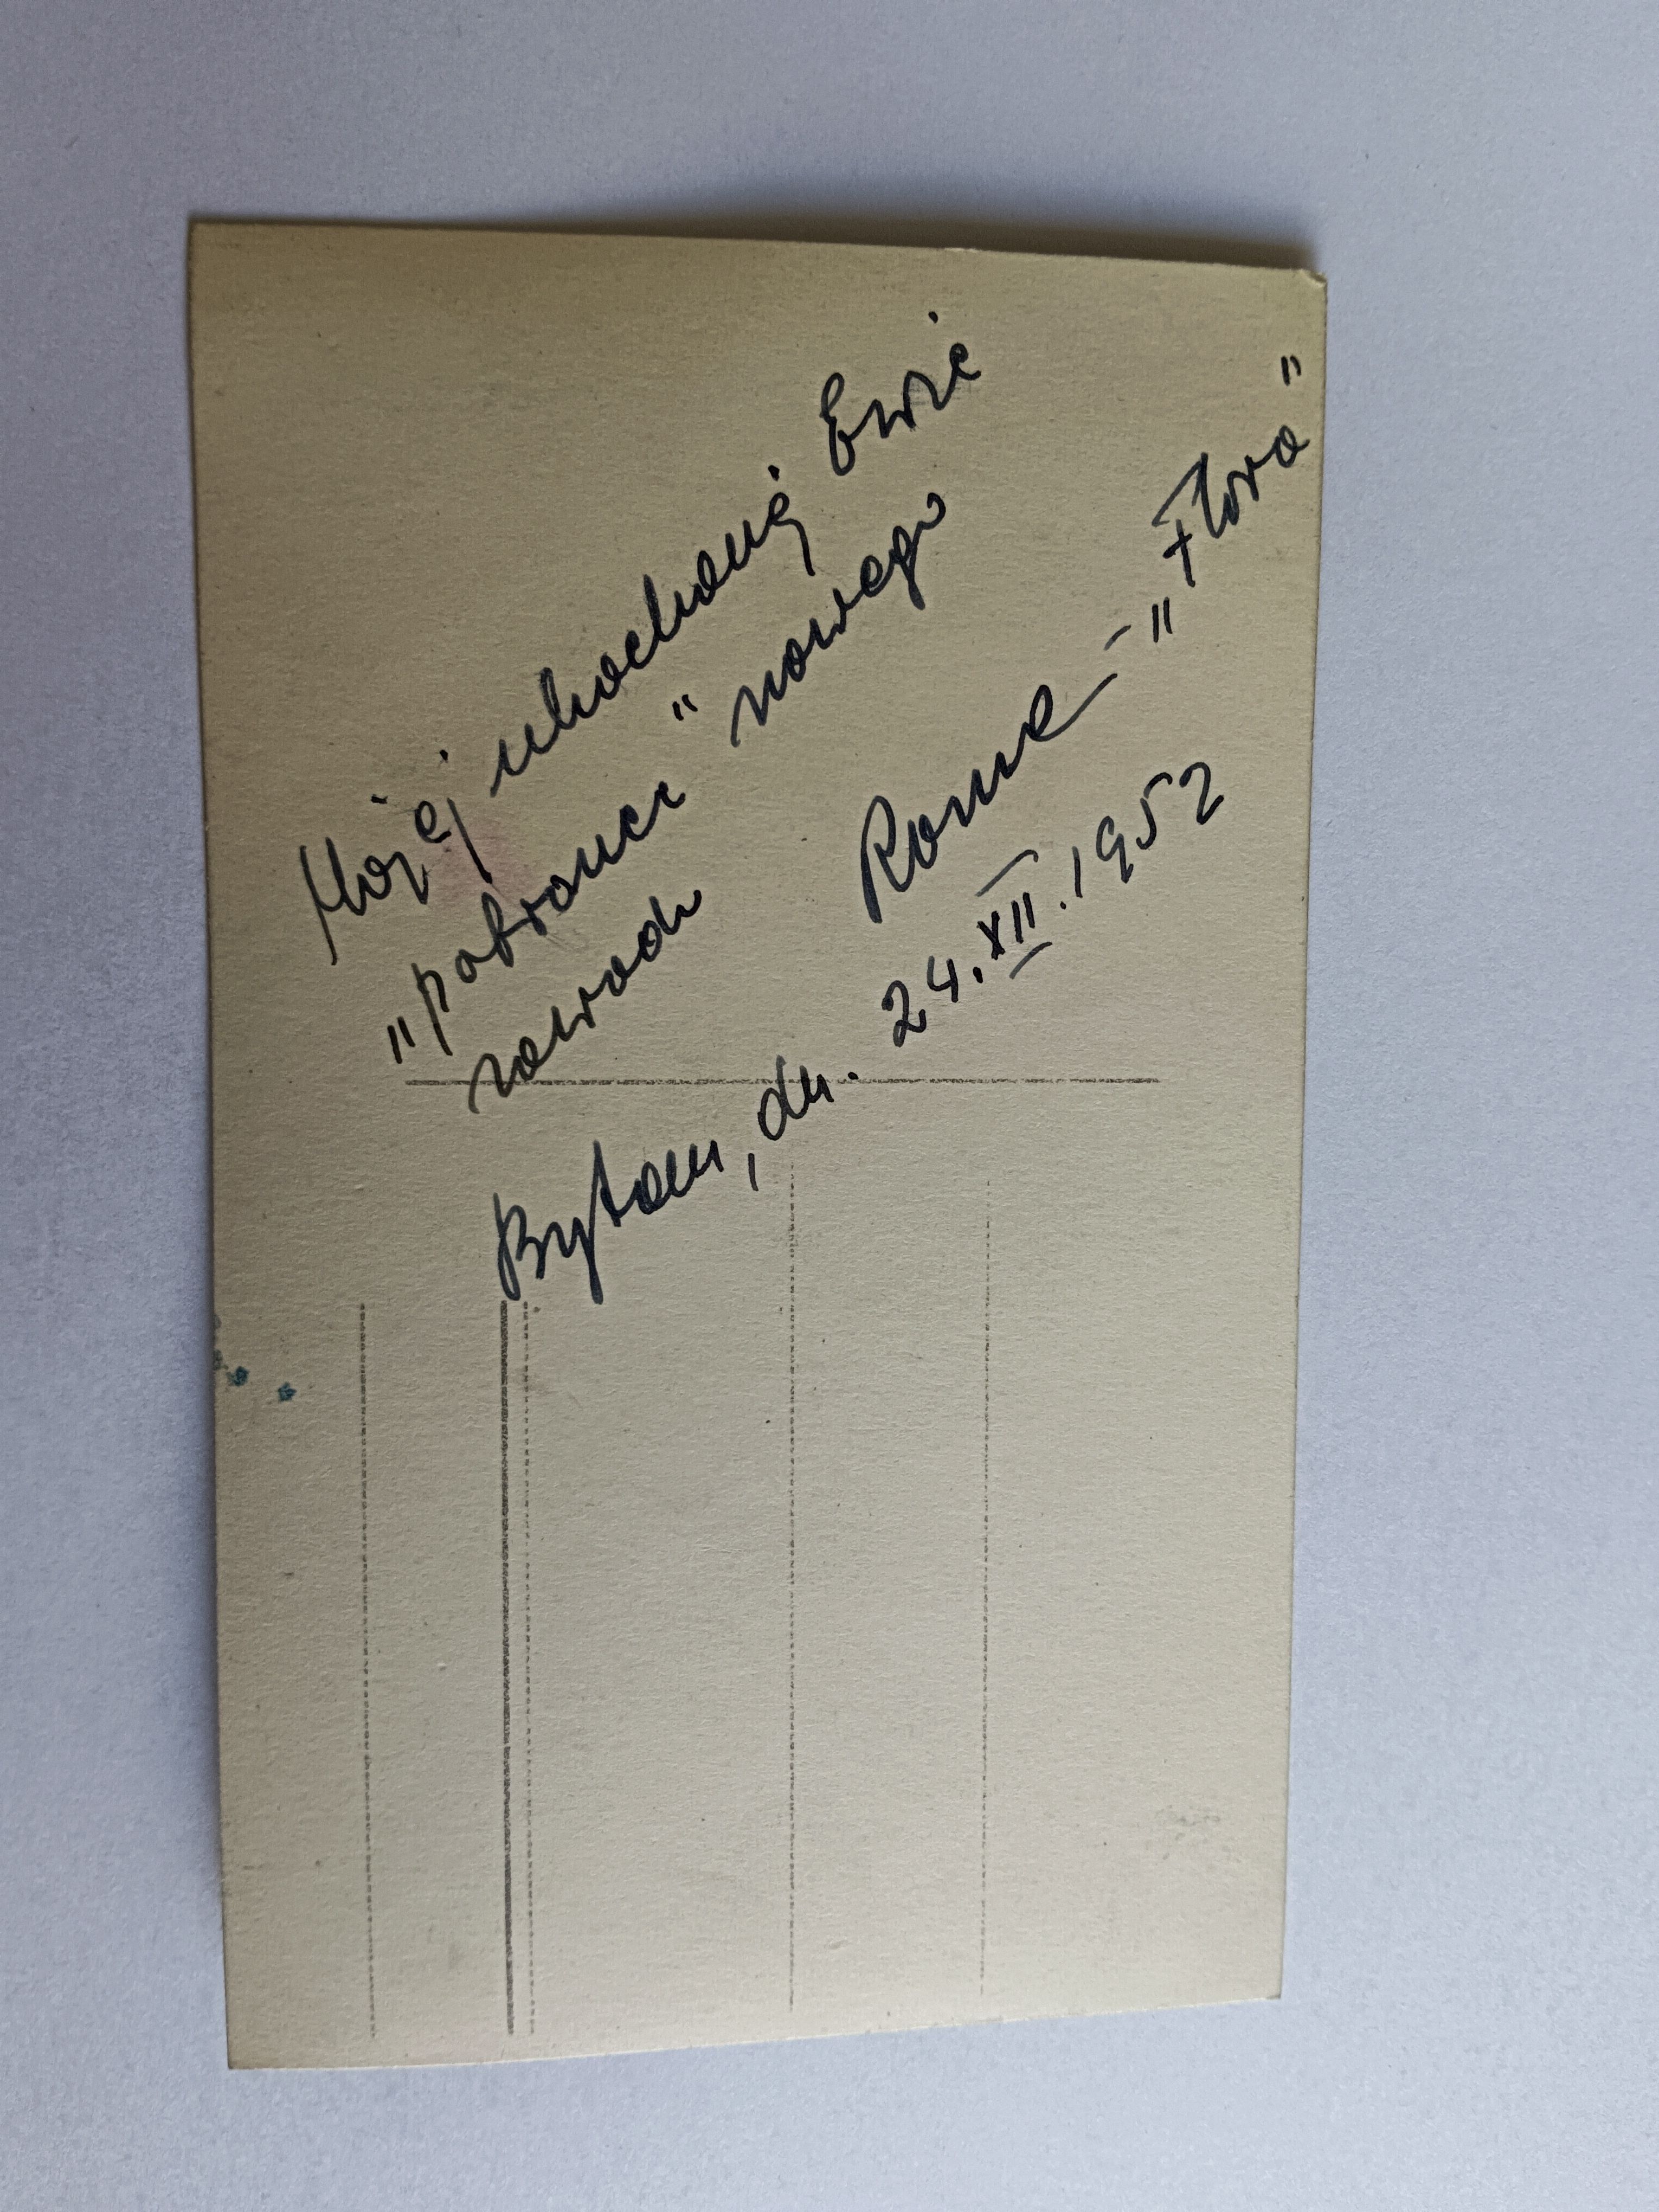 Mojej ukochanej Ewie
"pobrance" nowego
zawodu
Roma – "Flora"
Bytom, dn. 24.XII.1952